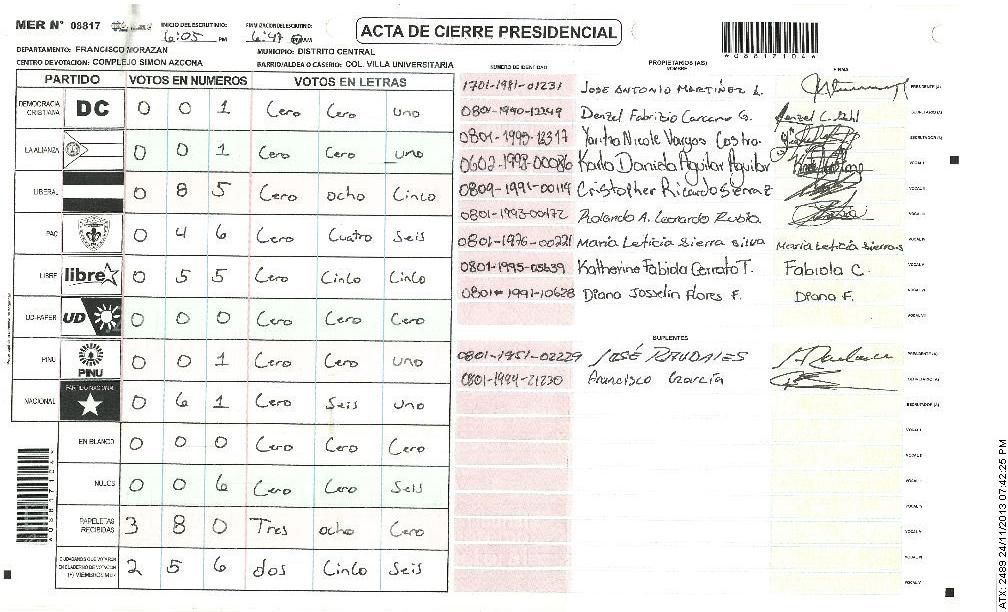 MER N° 08817 INICIO DEL ESCRUTINIO: 6:05 PM FINALIZACION DEL ESCRUTINIO: 6:47 PM
ACTA DE CIERRE PRESIDENCIAL
A088171046
DEPARTAMENTO: FRANCISCO MORAZAN MUNICIPIO: DISTRITO CENTRAL
CENTRO DE VOTACION: COMPLEJO SIMON AZCONA BARRIO/ALDEA O CASERIO: COL. VILLA UNIVERSITARIA
PARTIDO VOTOS EN NUMEROS VOTOS EN LETRAS
DEMOCRACIA CRISTIANA DC 0 0 1 Cero Cero Uno
LA ALIANZA 0 0 1 Cero Cero uno
LIBERAL 0 8 5 Cero ocho Cinco
PAC 0 4 6 Cero Cuatro Seis
LIBRE libre 0 5 5 Cero Cinco Cinco
UD-FAPER UD 0 0 0 Cero Cero Cero
PINU PINU 0 0 1 Cero Cero uno
NACIONAL PARTIDO NACIONAL 0 6 1 Cero Seis uno
EN BLANCO 0 0 0 Cero Cero Cero
NULOS 0 0 6 Cero Cero Seis
PAPELETAS RECIBIDAS 3 8 0 Tres ocho Cero
CIUDADANOS QUE VOTARON EN CUADERNO DE VOTACION (+) MIEMBROS MER 2 5 6 dos Cinco Seis
A088171046
NUMERO DE IDENTIDAD PROPIETARIOS (AS) NOMBRE FIRMA
1701-1981-01231 JOSE ANTONIO MARTINEZ L. PRESIDENTE (A)
0801-1990-12349 Denzel Fabrizio Carcamo G. Denzel C. SECRETARIO (A)
0801-1995-12317 Yaritza Nicole Vargas Castro. ESCRUTADOR (A)
0602-1993-00086 Karla Daniela Aguilar Aguilar VOCAL I
0809-1991-00114 Cristopher Ricardo Sierra Z VOCAL II
0801-1993-00172 Rolando A. Leonardo Rubio VOCAL III
0801-1976-00221 Maria Leticia Sierra Silva Maria Leticia Sierra S VOCAL IV
0801-1995-05639 Katherine Fabiola Cerrato T. Fabiola C. VOCAL V
0801-1991-10628 Diana Josselin Flores F. Diana F. VOCAL VI
VOCAL VII
SUPLENTES
0801-1951-02229 JOSÉ RAUDALES PRESIDENTE (A)
0801-1994-21230 Francisco García SECRETARIO (A)
ESCRUTADOR (A)
VOCAL I
VOCAL II
VOCAL III
VOCAL IV
VOCAL V
VOCAL VI
VOCAL V
ATX: 2489 24/11/2013 07:42:25 PM